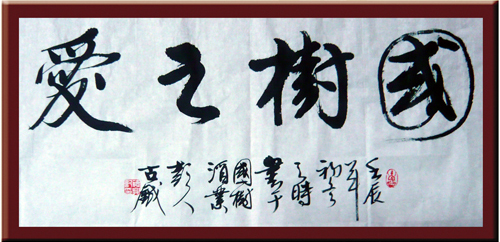 國樹之愛
壬辰
年
初
之時
書于
國樹
酒業
人
古